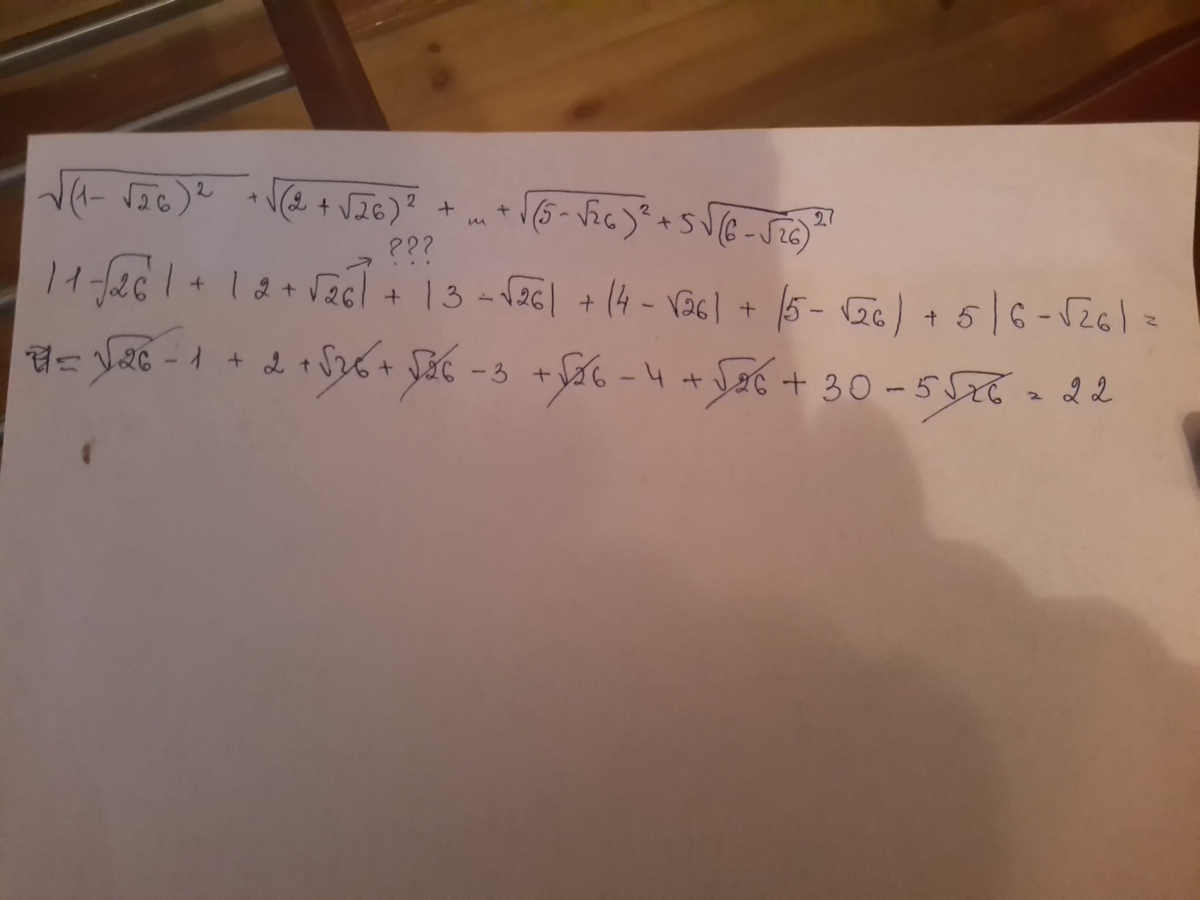 √(1-√26)² + √(2+√26)² + ... + √(5-√26)² + 5√(6-√26)²
???
|1-√26| + |2+√26| + |3-√26| + |4-√26| + |5-√26| + 5|6-√26| =
= √26 - 1 + 2 + √26 + √26 - 3 + √26 - 4 + √26 + 30 - 5√26 = 22